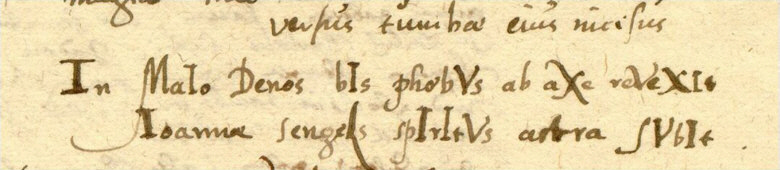 versus tumbæ eius incisus
In MaIo Denos bIs phœbVs ab aXe reVeXIt
Ioannæ sengeLs spIrItVs astra sVbIt .